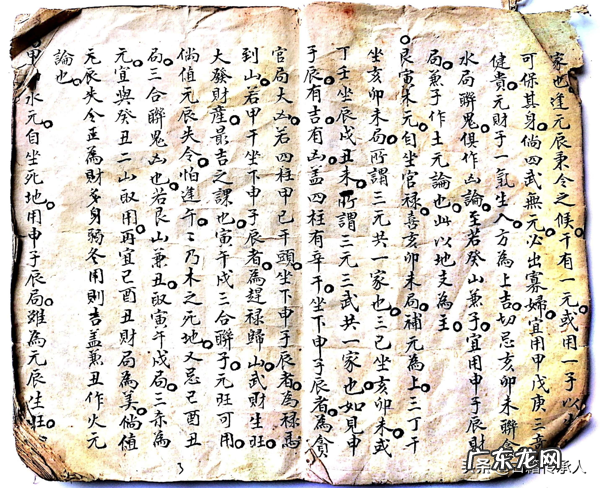 家也逢元辰秉令之候干有一元或用一子以生
可保其身倘四武無元必出寡婦宜用甲戊庚三奇
健貴元財子一氣生入方為上吉切忌亥卯未聯會
水局聯鬼俱作凶論至若癸山兼子宜用申子辰財
局兼子作土元論也此以地支為主
艮寅朱元自坐官祿喜亥卯未局補元為上三丁干
坐亥卯未局所謂三元共一家也三己坐亥卯未或
丁壬坐辰戌丑未所謂三元三武共一家也如見申
子辰有吉有凶蓋四柱有辛干坐下申子辰者為貪
官局大凶若四柱甲己干頭坐下申子辰者為祿馬
到山若甲干坐下申子辰者為趕祿歸山武財生旺
大發財產最吉之課也寅午戌三合聯子元旺可用
倘值元辰失令怕逢午午乃木之死地又忌巳酉丑
局三合聯鬼凶也若艮山兼丑取寅午戌局三奈為
元宜與癸丑二山取用再宜巳酉丑財局為美倘值
元辰失令並為財多身弱冬用則吉蓋兼丑作火元
論也
甲 水元自坐死地用申子辰局雖為元辰生旺
3
廣東龍網